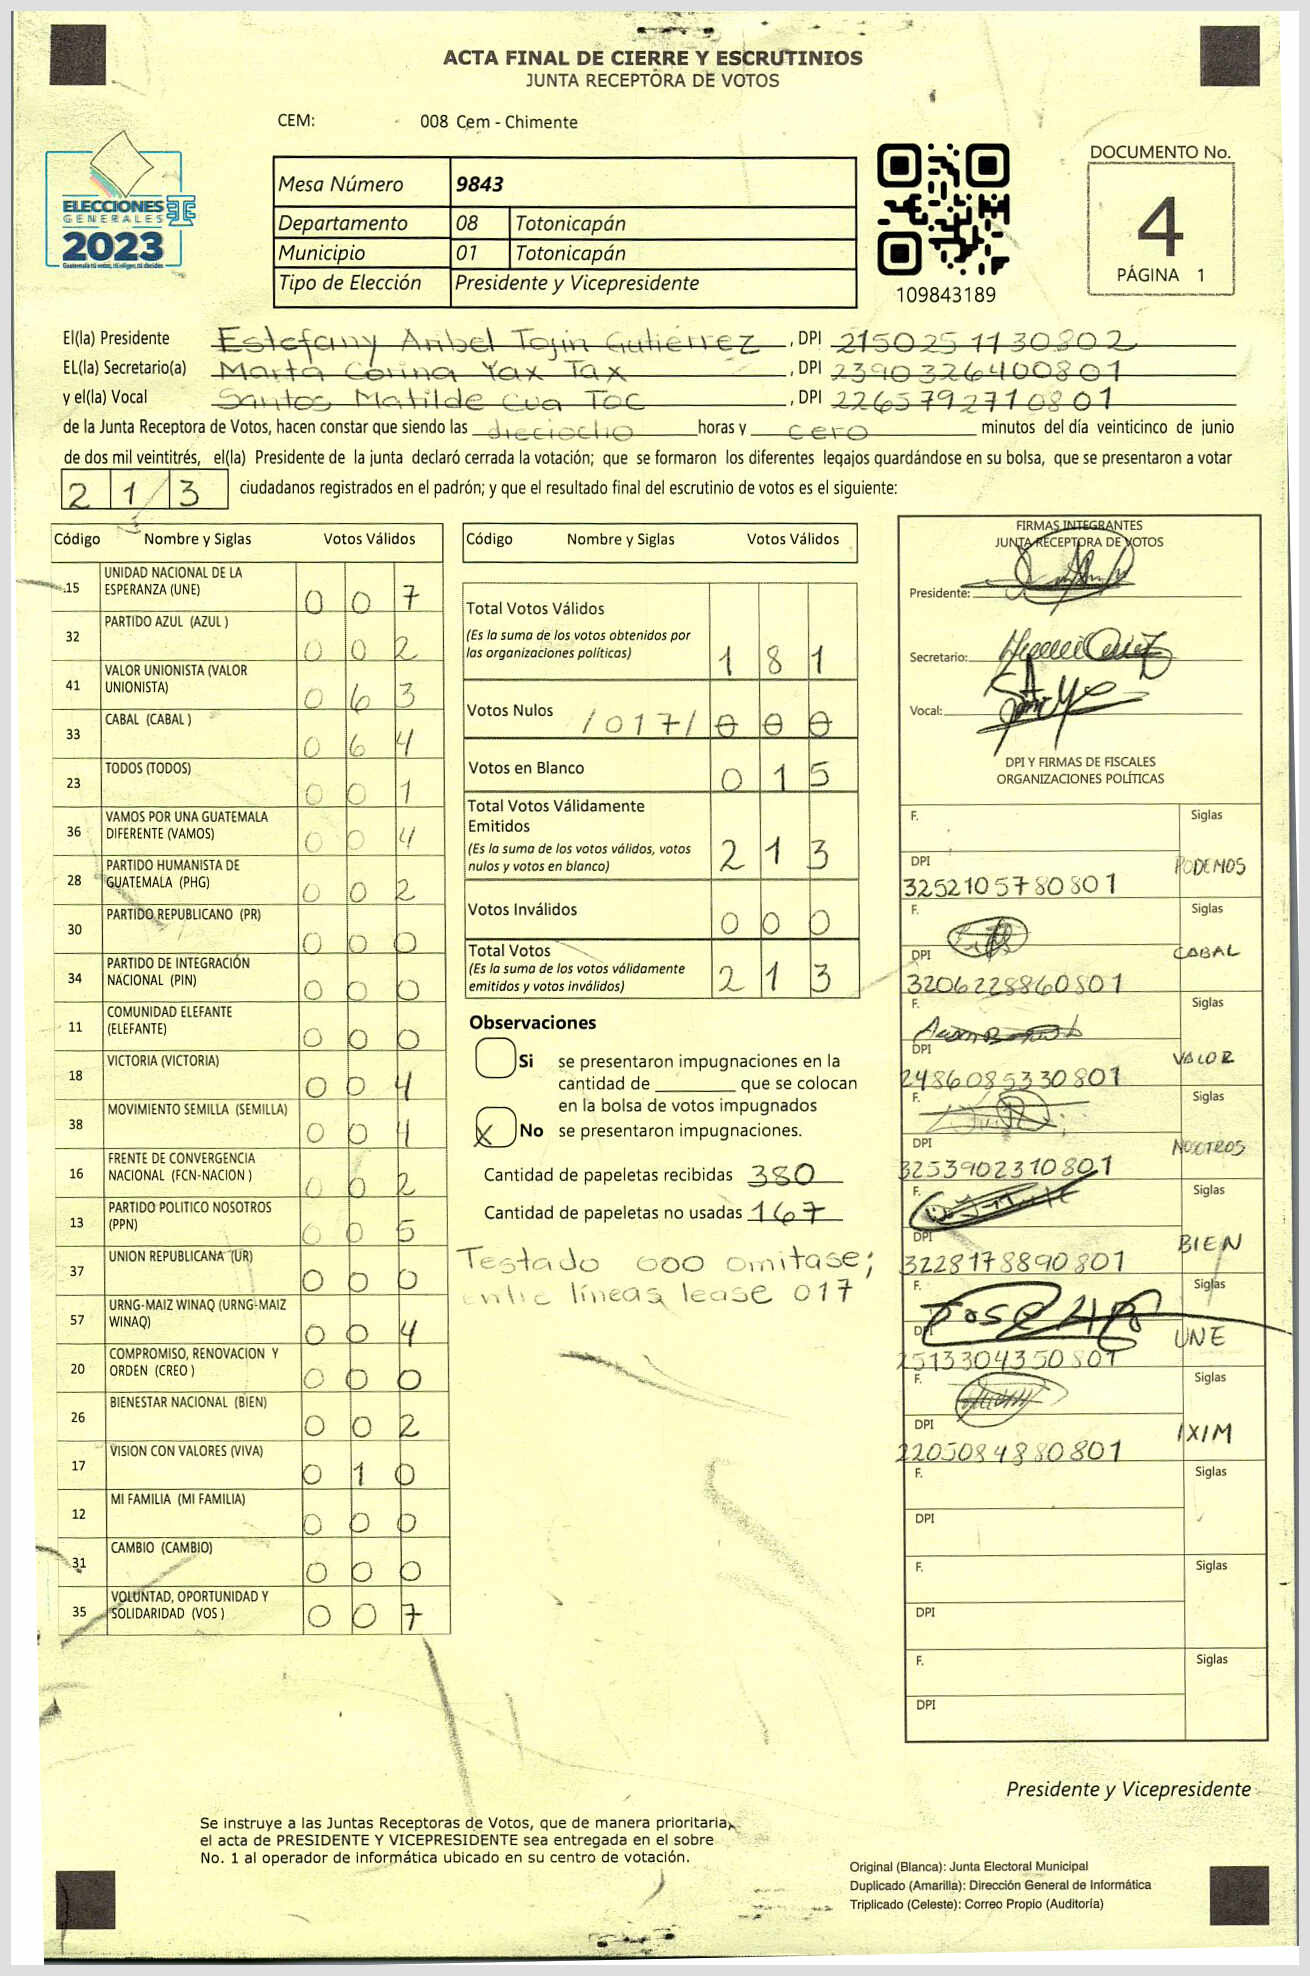 ACTA FINAL DE CIERRE Y ESCRUTINIOS
JUNTA RECEPTORA DE VOTOS
CEM: 008 Cem - Chimente
ELECCIONES
GENERALES
2023
Guatemala tú votas, tú eliges, tú decides
Mesa Número 9843
Departamento 08 Totonicapán
Municipio 01 Totonicapán
Tipo de Elección Presidente y Vicepresidente
109843189
DOCUMENTO No.
4
PÁGINA 1
El(la) Presidente Estefany Aribel Tojin Gutiérrez, DPI 2150251130802
EL(la) Secretario(a) Marta Corina Yax Tax, DPI 2390326400801
y el(la) Vocal Santos Matilde Cua Toc, DPI 2265792710801
de la Junta Receptora de Votos, hacen constar que siendo las dieciocho horas y cero minutos del día veinticinco de junio
de dos mil veintitrés, el(la) Presidente de la junta declaró cerrada la votación; que se formaron los diferentes legajos guardándose en su bolsa, que se presentaron a votar
213 ciudadanos registrados en el padrón; y que el resultado final del escrutinio de votos es el siguiente:
Código Nombre y Siglas Votos Válidos
15 UNIDAD NACIONAL DE LA ESPERANZA (UNE) 0 0 7
32 PARTIDO AZUL (AZUL ) 0 0 2
41 VALOR UNIONISTA (VALOR UNIONISTA) 0 6 3
33 CABAL (CABAL ) 0 6 4
23 TODOS (TODOS) 0 0 1
36 VAMOS POR UNA GUATEMALA DIFERENTE (VAMOS) 0 0 4
28 PARTIDO HUMANISTA DE GUATEMALA (PHG) 0 0 2
30 PARTIDO REPUBLICANO (PR) 0 0 0
34 PARTIDO DE INTEGRACIÓN NACIONAL (PIN) 0 0 0
11 COMUNIDAD ELEFANTE (ELEFANTE) 0 0 0
18 VICTORIA (VICTORIA) 0 0 4
38 MOVIMIENTO SEMILLA (SEMILLA) 0 0 4
16 FRENTE DE CONVERGENCIA NACIONAL (FCN-NACION ) 0 0 2
13 PARTIDO POLITICO NOSOTROS (PPN) 0 0 5
37 UNION REPUBLICANA (UR) 0 0 0
57 URNG-MAIZ WINAQ (URNG-MAIZ WINAQ) 0 0 4
20 COMPROMISO, RENOVACION Y ORDEN (CREO ) 0 0 0
26 BIENESTAR NACIONAL (BIEN) 0 0 2
17 VISION CON VALORES (VIVA) 0 1 0
12 MI FAMILIA (MI FAMILIA) 0 0 0
31 CAMBIO (CAMBIO) 0 0 0
35 VOLUNTAD, OPORTUNIDAD Y SOLIDARIDAD (VOS ) 0 0 7
Código Nombre y Siglas Votos Válidos
Total Votos Válidos
(Es la suma de los votos obtenidos por
las organizaciones políticas) 1 8 1
Votos Nulos /017/ 0 0 0
Votos en Blanco 0 1 5
Total Votos Válidamente
Emitidos
(Es la suma de los votos válidos, votos
nulos y votos en blanco) 2 1 3
Votos Inválidos 0 0 0
Total Votos
(Es la suma de los votos válidamente
emitidos y votos inválidos) 2 1 3
Observaciones
Si se presentaron impugnaciones en la
cantidad de ________ que se colocan
en la bolsa de votos impugnados
X No se presentaron impugnaciones.
Cantidad de papeletas recibidas 380
Cantidad de papeletas no usadas 167
Testado 000 omitase;
entre líneas lease 017
FIRMAS INTEGRANTES
JUNTA RECEPTORA DE VOTOS
Presidente:
Secretario:
Vocal:
DPI Y FIRMAS DE FISCALES
ORGANIZACIONES POLÍTICAS
F. Siglas
DPI PODEMOS
3252105780801
F. Siglas
DPI CABAL
3206228860801
F. Siglas
DPI VALOR
2486085330801
F. Siglas
DPI NOSOTROS
3253902310801
F. Siglas
DPI BIEN
3228178890801
F. Siglas
DPI UNE
2513304350801
F. Siglas
DPI IXIM
2205084880801
F. Siglas
DPI
F. Siglas
DPI
F. Siglas
DPI
Presidente y Vicepresidente
Se instruye a las Juntas Receptoras de Votos, que de manera prioritaria,
el acta de PRESIDENTE Y VICEPRESIDENTE sea entregada en el sobre
No. 1 al operador de informática ubicado en su centro de votación.
Original (Blanca): Junta Electoral Municipal
Duplicado (Amarilla): Dirección General de Informática
Triplicado (Celeste): Correo Propio (Auditoría)